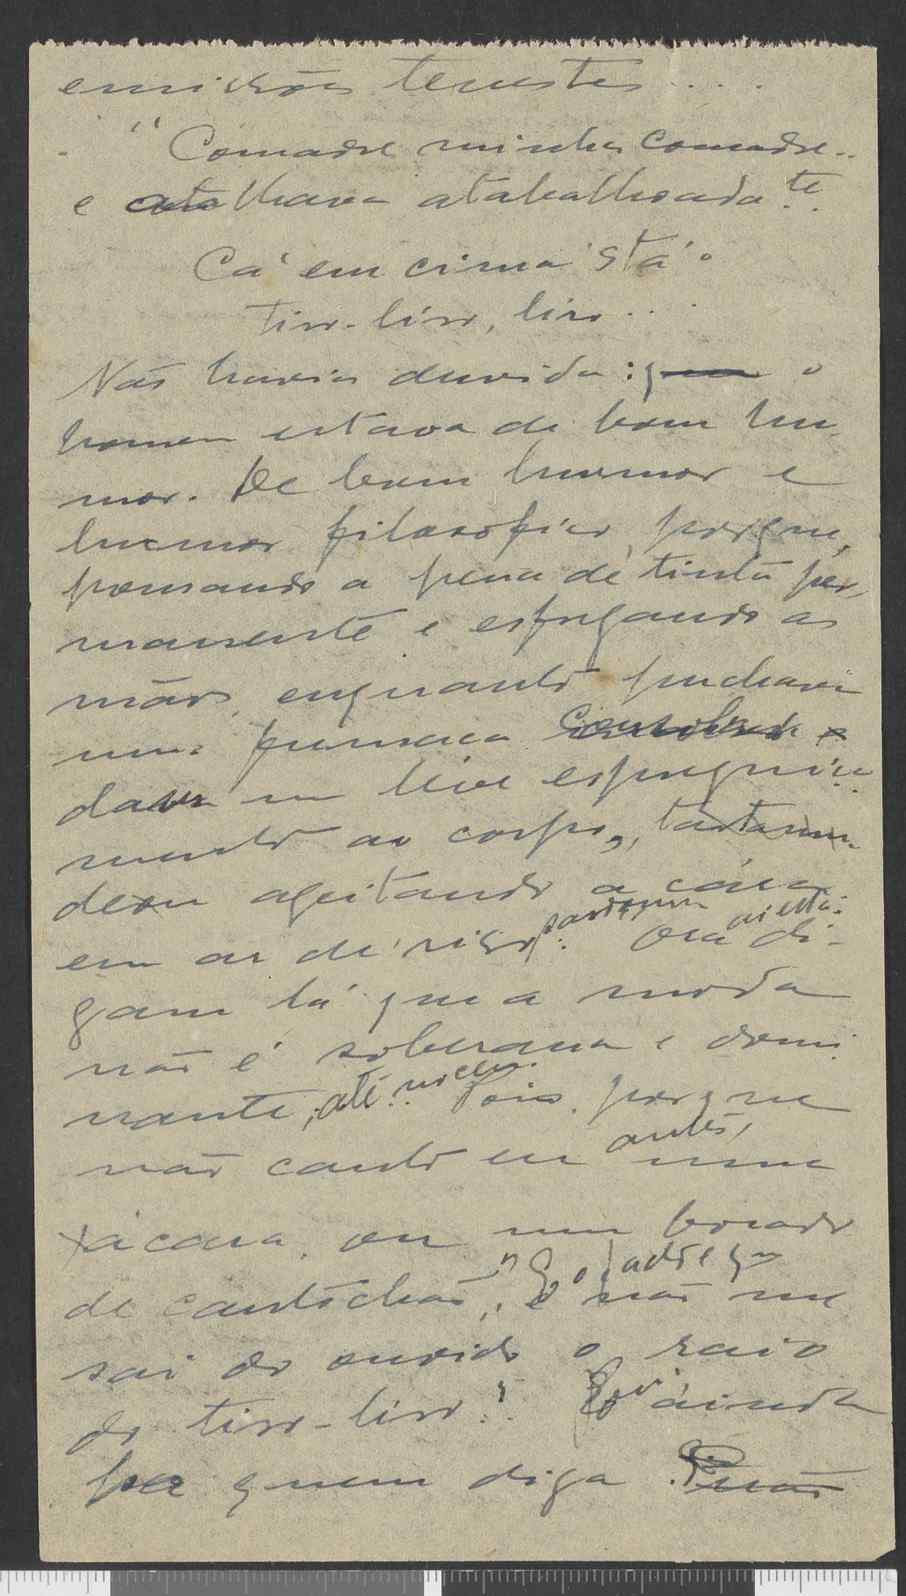 terrestres...
"Comadre minha comadre..
e atalhava atabalhoada te..
Cá em cima 'stá o
tiro-liro, liro...
Não havia duvida: o
homem estava de bom hu-
mor. De bom humor e
humor filosofico porque,
pousando a pena de tinta per-
manente e esfregando as
mãos, enquanto puchava
uma fumaca
dava um leve espreguiça-
mento ao corpo,
deou ageitando a cára
em ar de riso: Ora di-
gam lá que a moda
não é soberana e domi-
nante, até no ceu. Pois porque
não canto eu antes, uma
xácara, ou um bocado
de cantochão, e não me
sai do ouvido o raio
do tiro-liro?! E ainda
ha quem diga